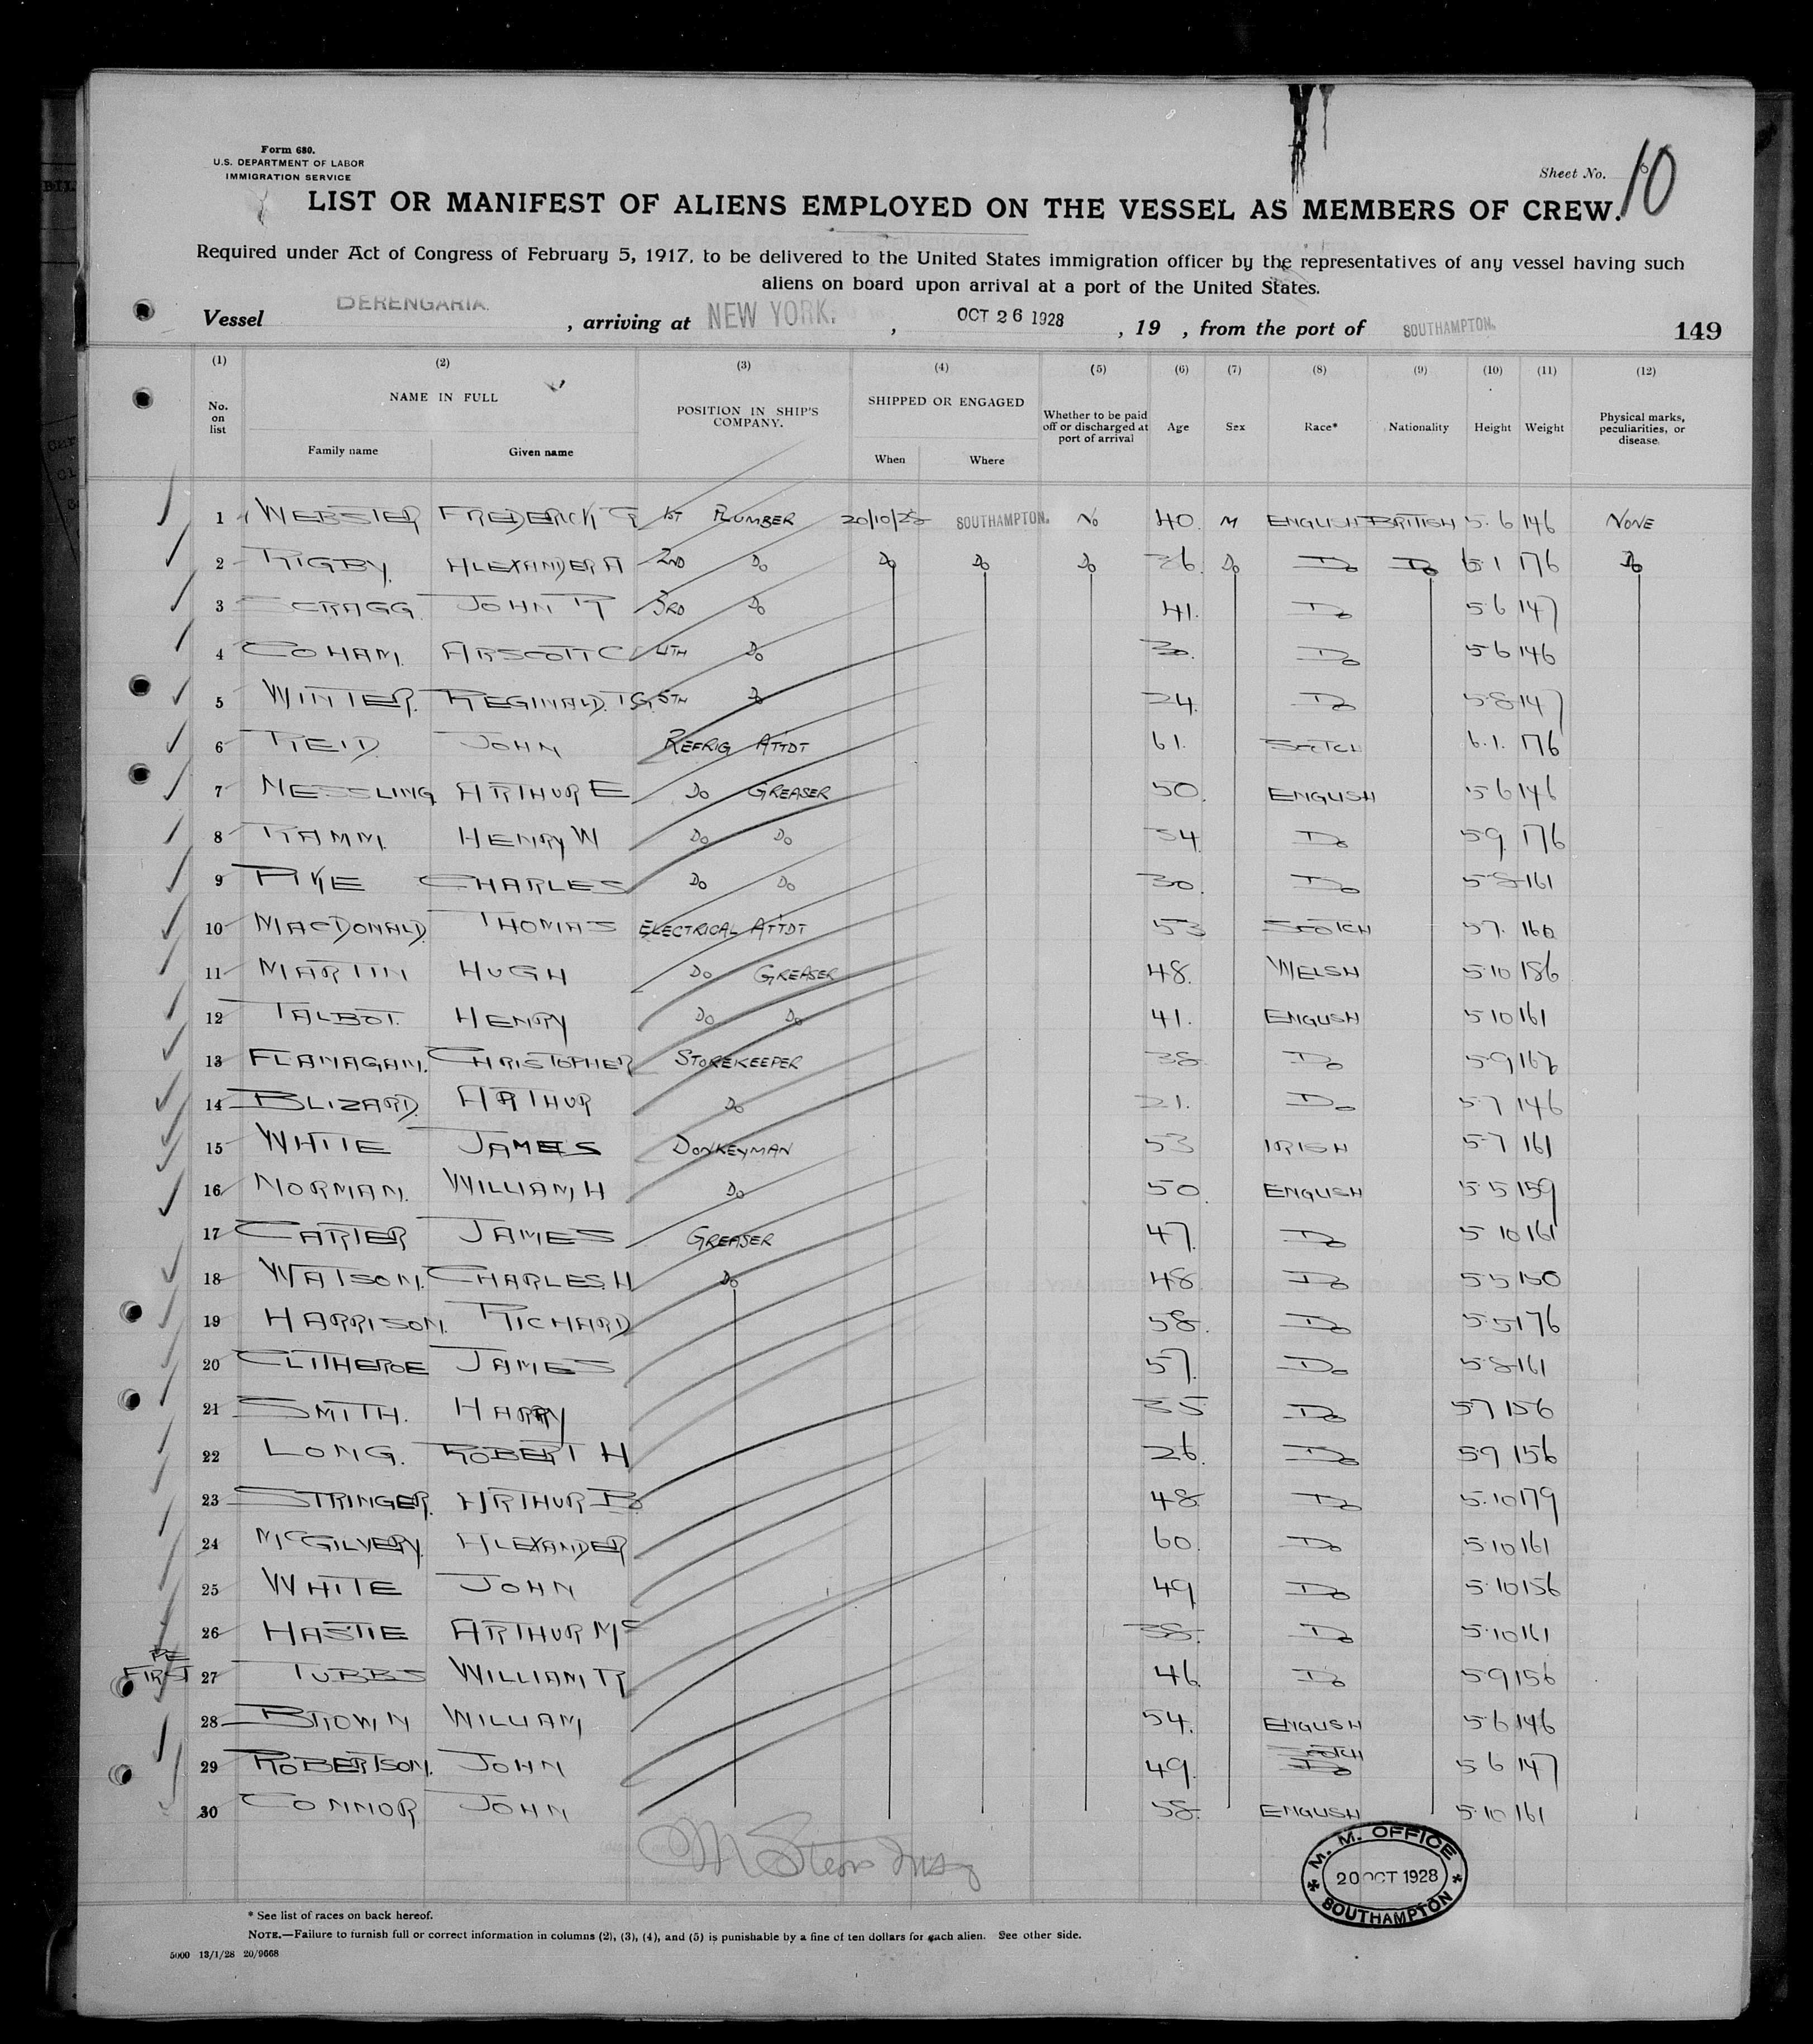 Form 680.
U.S. DEPARTMENT OF LABOR
IMMIGRATION SERVICE
Sheet No. 10
LIST OR MANIFEST OF ALIENS EMPLOYED ON THE VESSEL AS MEMBERS OF CREW.
Required under Act of Congress of February 5, 1917, to be delivered to the United States immigration officer by the representatives of any vessel having such
aliens on board upon arrival at a port of the United States.
Vessel BERENGARIA. , arriving at NEW YORK. , OCT 26 1928 , 19 , from the port of SOUTHAMPTON. 149
(1) (2) (3) (4) (5) (6) (7) (8) (9) (10) (11) (12)
No. on list NAME IN FULL Family name Given name POSITION IN SHIP'S COMPANY. SHIPPED OR ENGAGED When Where Whether to be paid off or discharged at port of arrival Age Sex Race* Nationality Height Weight Physical marks, peculiarities, or disease.
1 WEBSTER FREDERICK G 1ST PLUMBER 20/10/28 SOUTHAMPTON. NO 40. M ENGLISH BRITISH 5.6 146 NONE
2 RIGBY. ALEXANDER A 2ND DO DO DO DO 36. DO DO DO 6.1 176 DO
3 SCRAGG JOHN R 3RD DO 41. DO 5.6 147
4 COHAM. ARSCOTT C 4TH DO 30. DO 5.6 146
5 WINTER. REGINALD. T G. 5TH DO 24. DO 5.8 147
6 REID. JOHN REFRIG ATTDT 61. SCOTCH 6.1. 176
7 MESSLING ARTHUR E DO GREASER 50. ENGLISH 5.6 146
8 RAMM. HENRY W DO DO 34. DO 5.9 176
9 PIKE CHARLES DO DO 30. DO 5.8 161
10 MACDONALD. THOMAS ELECTRICAL ATTDT 53 SCOTCH 5.7. 160
11 MARTIN HUGH DO GREASER 48. WELSH 5.10 186
12 TALBOT. HENRY DO DO 41. ENGLISH 5.10 161
13 FLANAGAN. CHRISTOPHER STOREKEEPER 38 DO 5.9
14 BLIZARD. ARTHUR DO 21. DO 5.7 146
15 WHITE JAMES DONKEYMAN 53 IRISH 5.7 161
16 NORMAN. WILLIAM, H DO 50. ENGLISH 5.5 159
17 CARTER JAMES GREASER 47. DO 5.10 161
18 WATSON. CHARLES. H DO 48. DO 5.5 150
19 HARRISON. RICHARD 58. DO 5.5 176
20 CLITHEROE JAMES 57. DO 5.8 161
21 SMITH. HARRY 35 DO 5.7 156
22 LONG. ROBERT H 26. DO 5.9 156
23 STRINGER. ARTHUR B. 48. DO 5.10 179
24 McGILVERY. ALEXANDER 60. DO 5.10 161
25 WHITE JOHN 49 DO 5.10 156
26 HASTIE ARTHUR Mc 38. DO 5.10 161
FIRST 27 TUBBS WILLIAM R 46. DO 5.9 156
28 BROWN WILLIAM, 54. ENGLISH 5.6 146
29 ROBERTSON. JOHN 49. SCOTCH DO 5.6 147
30 CONNOR JOHN 58. ENGLISH 5.10 161
M. M. OFFICE
20 OCT 1928
SOUTHAMPTON
* See list of races on back hereof.
NOTE.—Failure to furnish full or correct information in columns (2), (3), (4), and (5) is punishable by a fine of ten dollars for each alien. See other side.
5000 13/1/28 20/9668